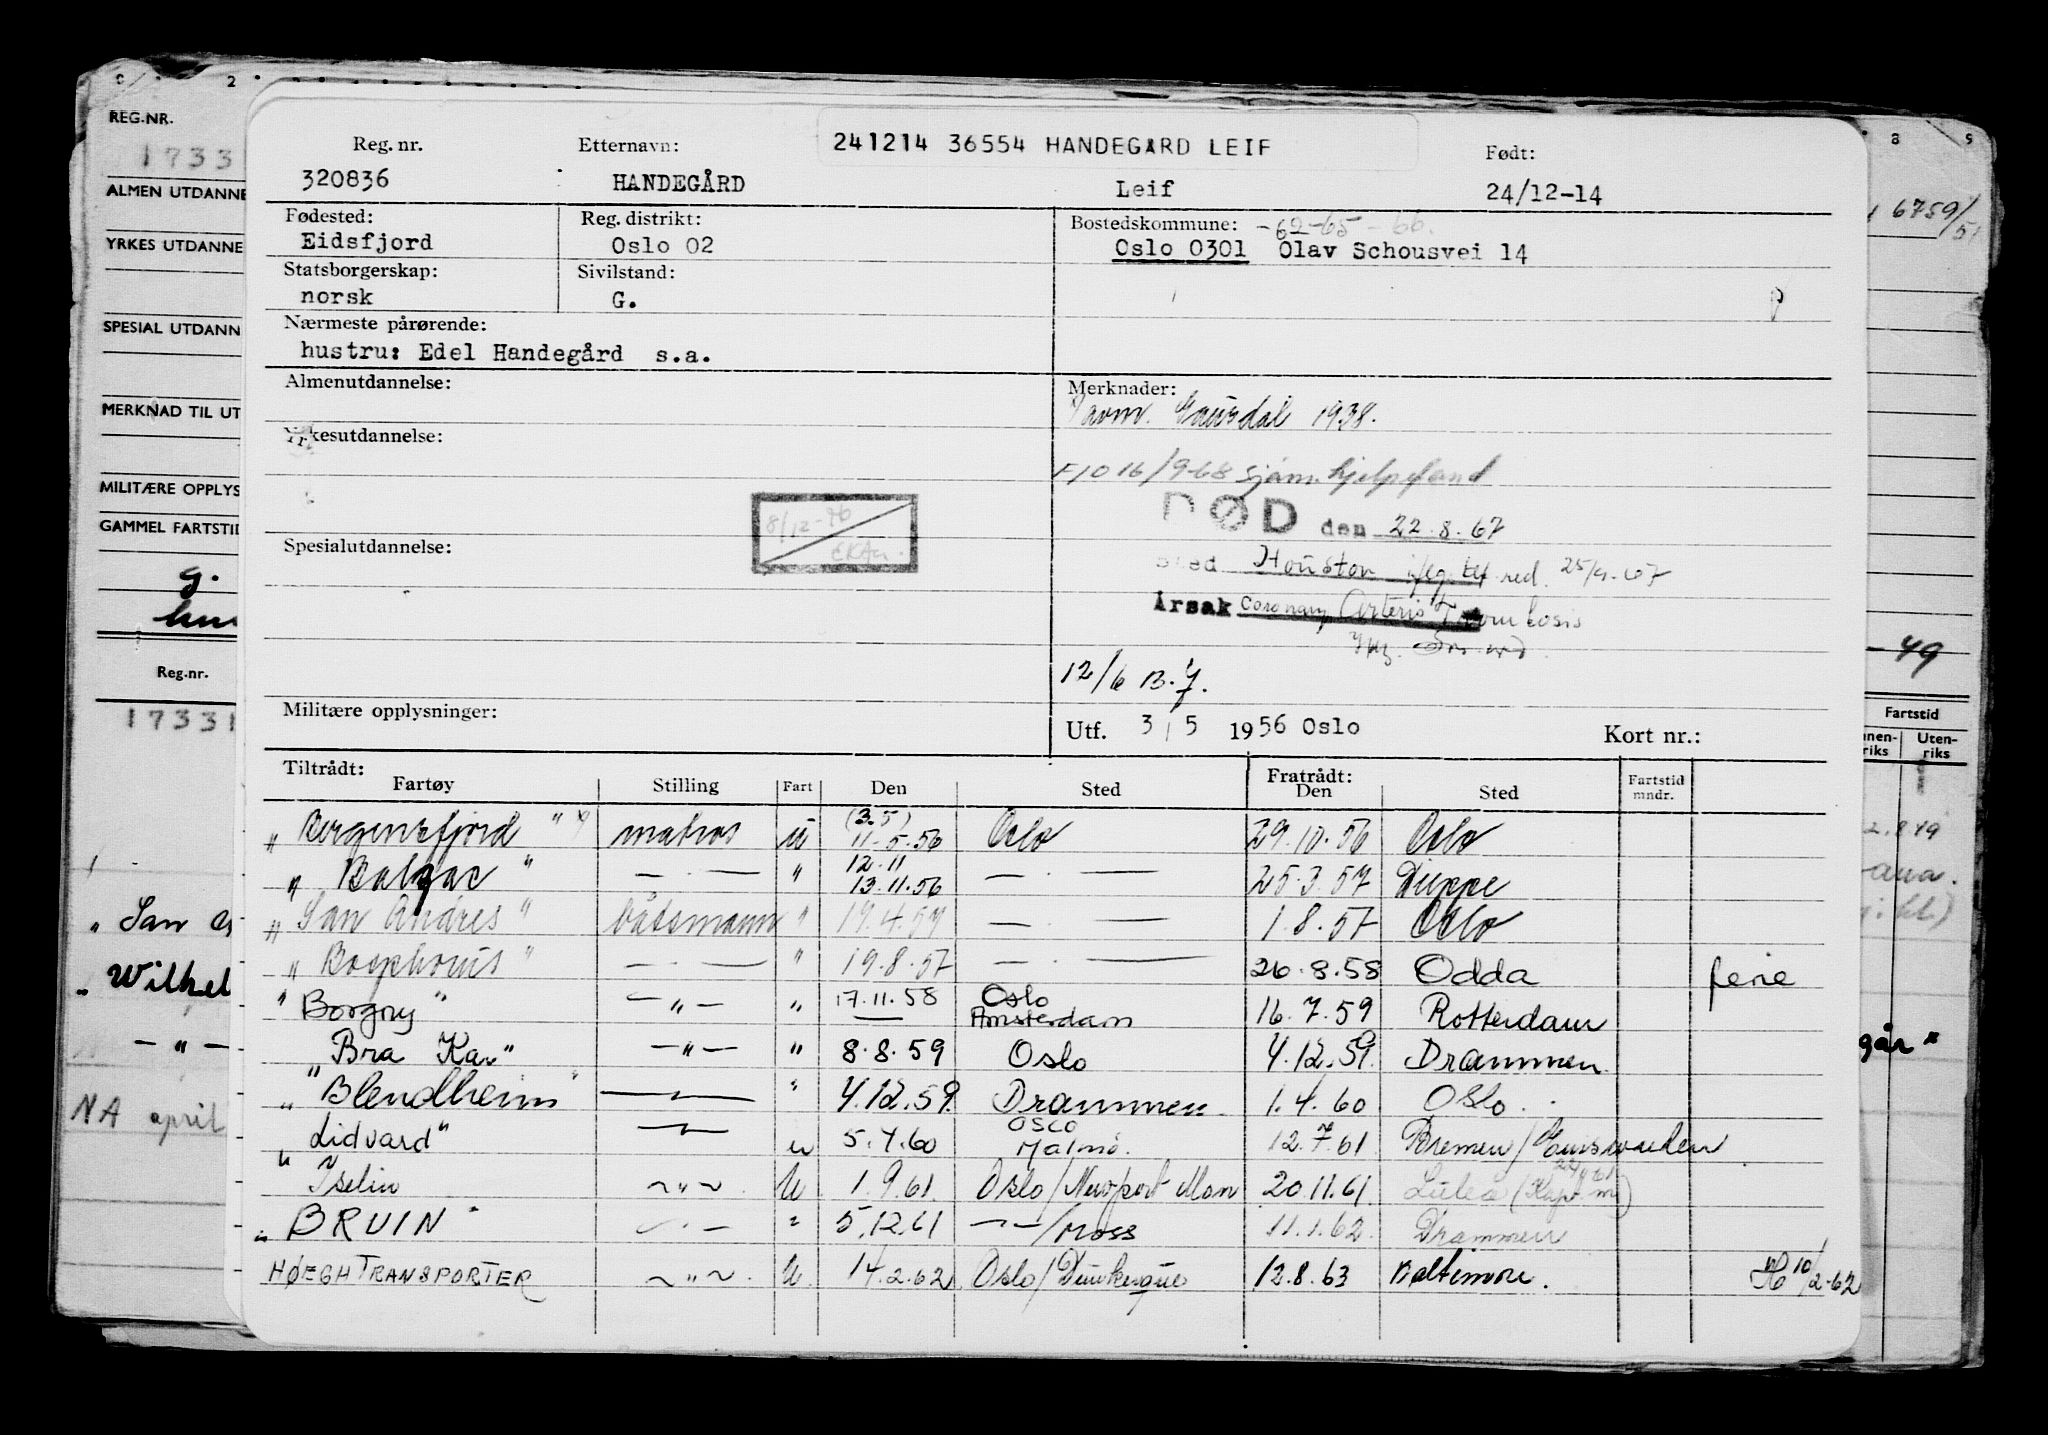 REG.NR.
1733
ALMEN UTDANNE
YRKES UTDANNE
SPESIAL UTDANN
MERKNAD TIL UT
MILITÆRE OPPLYS
GAMMEL FARTSTID
g.
Reg.nr.
17331
" San
" Wilhel
— " —
NA april
241214 36554 HANDEGARD LEIF
Reg. nr. Etternavn: Født:
320836 HANDEGÅRD Leif 24/12-14
Fødested: Reg. distrikt: Bostedskommune: -62-65-66.
Eidsfjord Oslo 02 Oslo 0301 Olav Schousvei 14
Statsborgerskap: Sivilstand:
norsk G.
Nærmeste pårørende:
hustru: Edel Handegård s.a.
Almenutdannelse: Merknader:
Gausdal 1938.
Yrkesutdannelse:
16/9-68 sjøm. hjelpefond
DØD den 22.8.67
8/12-76
Spesialutdannelse:
Sted Houston red. 25/9-67
Årsak Coronary Arteris Trombosis
12/6 B.J.
Militære opplysninger: Utf. 3/5 1956 Oslo Kort nr.:
Tiltrådt: Fratrådt:
Fartøy Stilling Fart Den Sted Den Sted Fartstid mndr.
" Bergensfjord " matros u (3.5) 11-5.56 Oslo 29.10.56 Oslo
" Balzac " — . — " 12.11 13.11.56 — . — 25.3.57 Dieppe
" San Andres " båtsmann " 19.4.57 — . — 1.8.57 Oslo
" — . — " 19.8.57 — . — 26.8.58 Odda ferie
" Borgny " — " — " 17.11.58 Oslo Amsterdam 16.7.59 Rotterdam
" Bra Kar " — " — " 8.8.59 Oslo 4.12.59 Drammen
" Blendheim " — " — " 4.12.59. Drammen. 1.4.60 Oslo.
" Lidvard " — " — u 5.4.60 Oslo Malmö. 12.7.61 Bremen/
Iselin — " — U 1.9.61 Oslo/Newport Mon 20.11.61 Luleå
" BRUIN " — . — " 5.12.61 — " —/Moss 11.1.62 Drammen
HØEGH TRANSPORTER — " — U. 14.2.62 Oslo/Dunkerque 12.8.63 Baltimore. 10/2-62
6759/51
-49
Fartstid
Uten-riks
går"